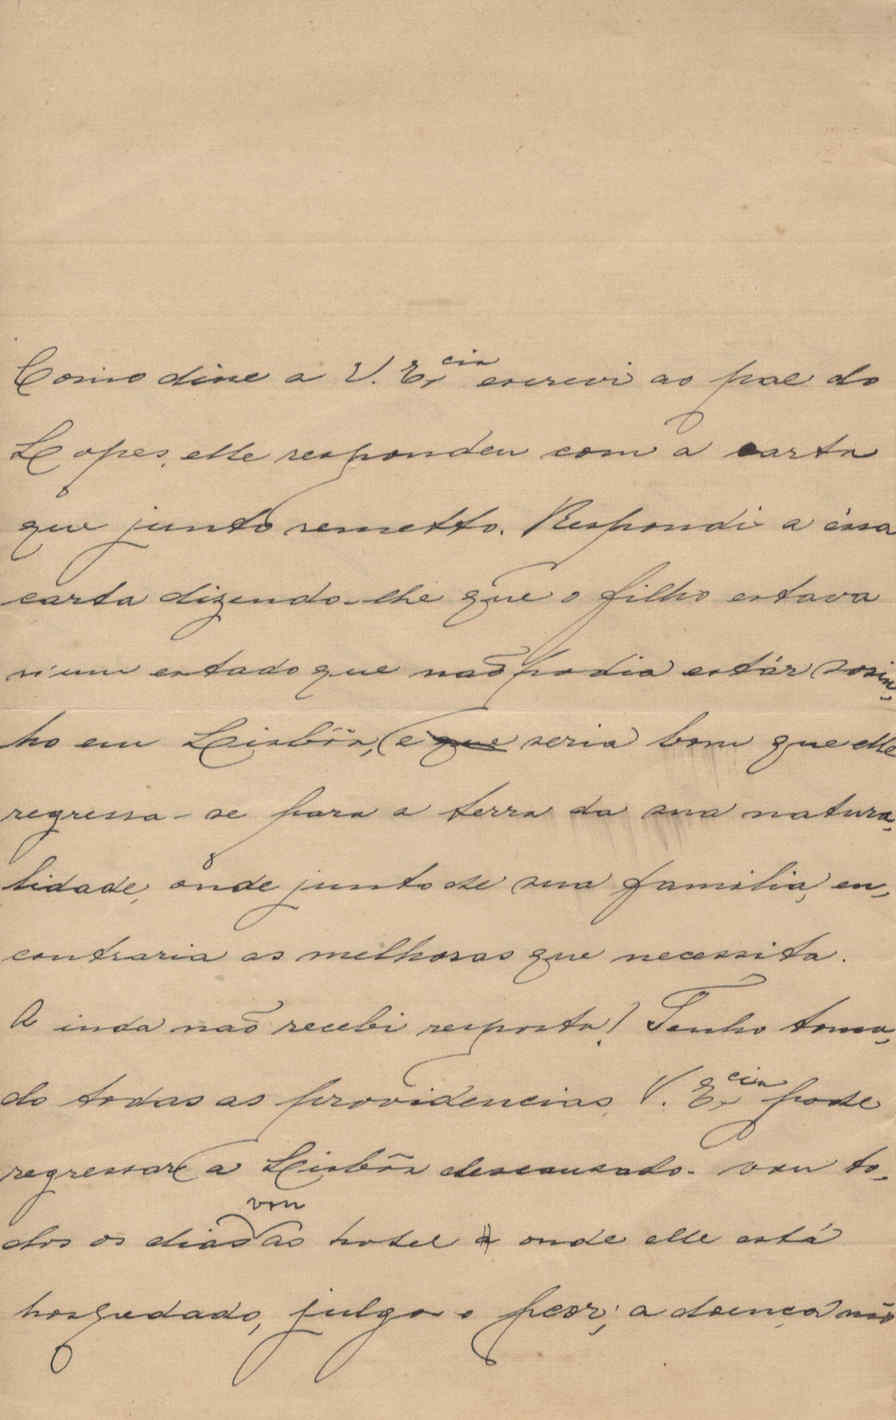 Como disse a V. Ex.cia escrevi ao pae do
Lopes, elle respondeu com a carta
que junto remetto. Respondi a éssa
carta dizendo-lhe que o filho estava
n'um estado que não podia estár sosin-
ho em Lisbôa, e que seria bom que elle
regressa-se para a terra da sua natura-
lidade, onde junto de sua familia, en-
contraria as melhoras que necessita.
Ainda não recebi resposta! Tenho toma-
do todas as providencias, V. Ex.cia pode
regressar a Lisbôa descansado. vou to-
dos os dias vou ao hotel onde elle está
hospedado, julgo o peor; a doença não